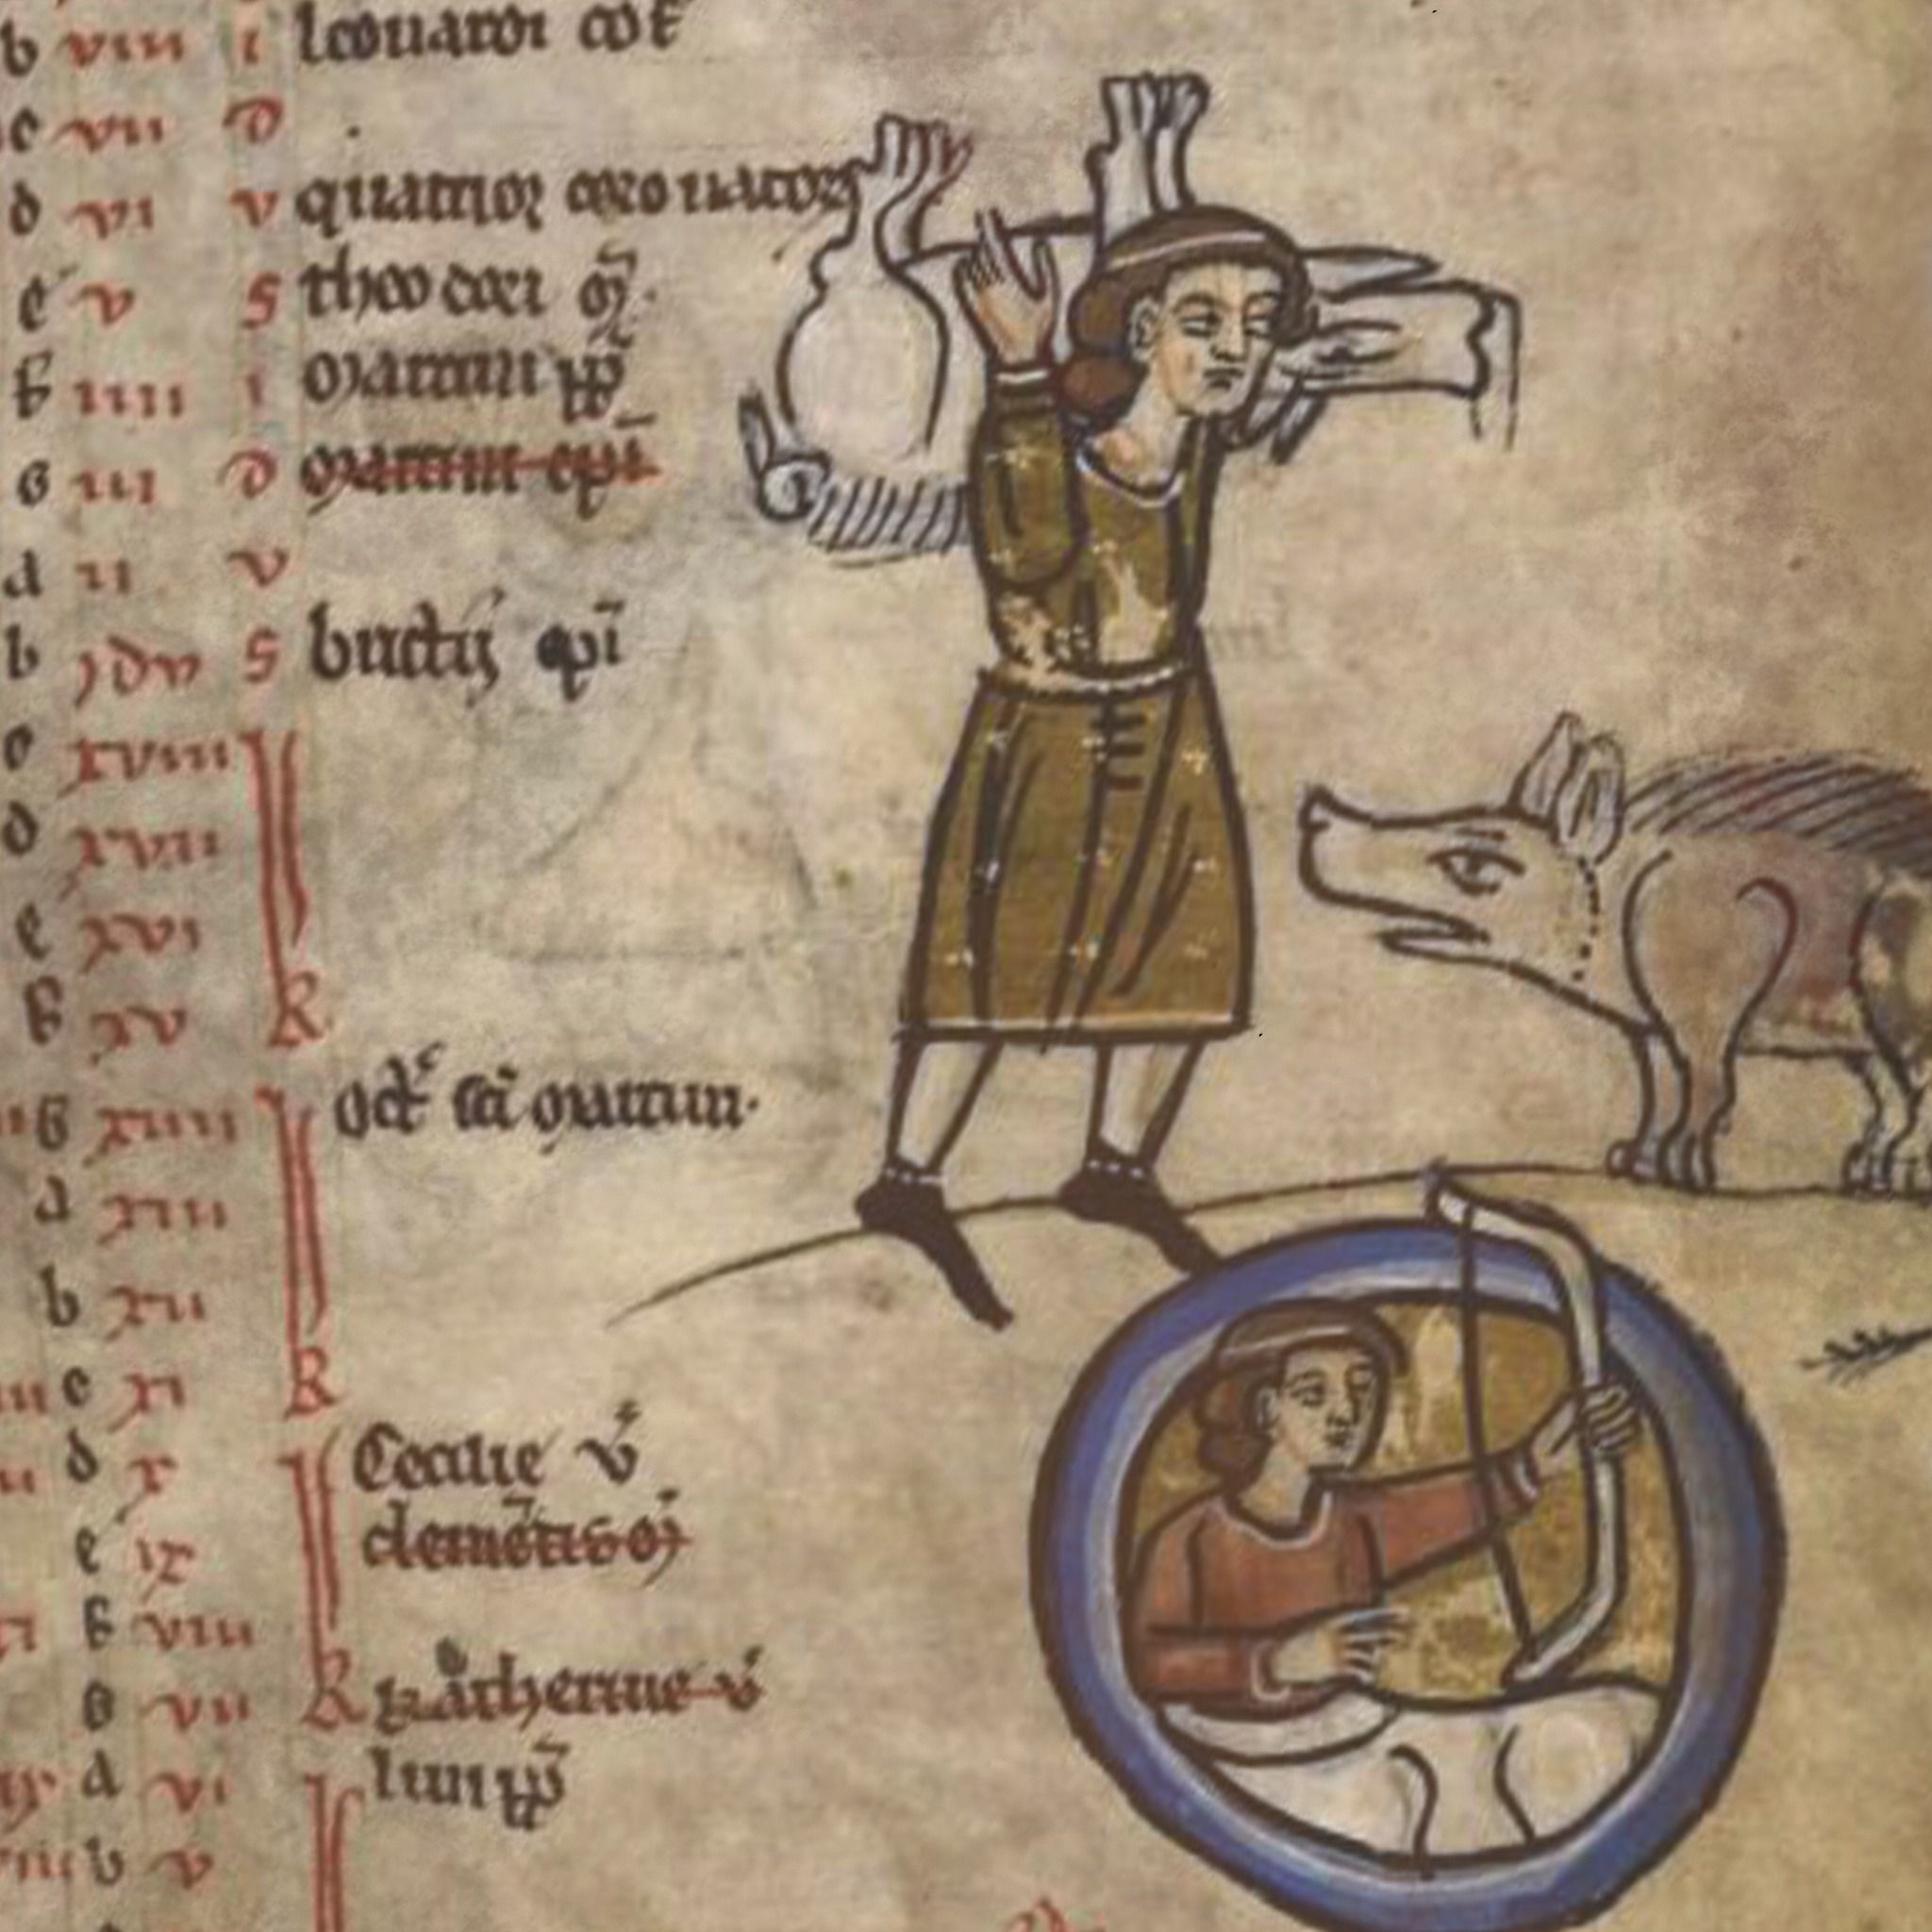 b viii i leonardi ꝯf
c vii D
d vi v quatuor coronatoꝝ
e v S theodori m̄.
f iiii i martini pp̄
G iii D martini epī
A ii v
b jdv S brictij epī
c xviii
d xvii
e xvi
f xv R
G xiiii oct̄ sc̄i martini.
A xiii
b xii
c xi R
d x Cecilie v̄
e ix clemētis
f viii
G vii R katherine v̄
A vi lini pp̄
b v